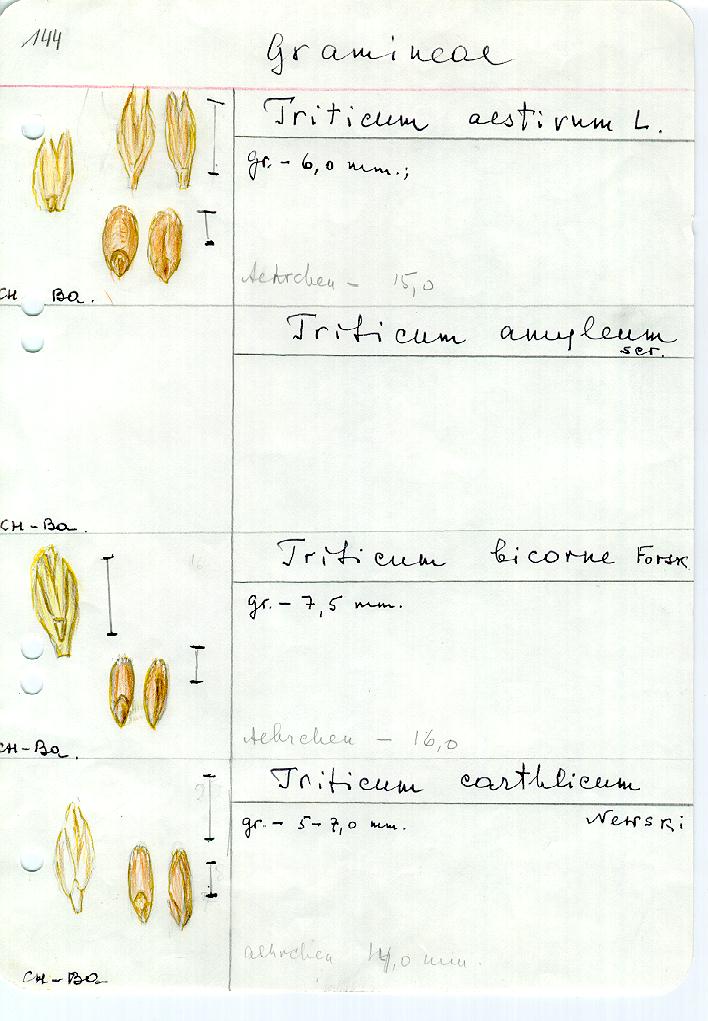 144
Gramineae
Triticum aestivum L.
gr. - 6,0 mm.;
Aehrchen - 15,0
CH Ba.
Triticum amyleum
ser.
CH-Ba.
Triticum bicorne Forsk
16
gr. - 7,5 mm.
Aehrchen - 16,0
CH-Ba.
Triticum carthlicum
gr. - 5-7,0 mm.
Newski
aehrchen 14,0 mm.
CH-Ba